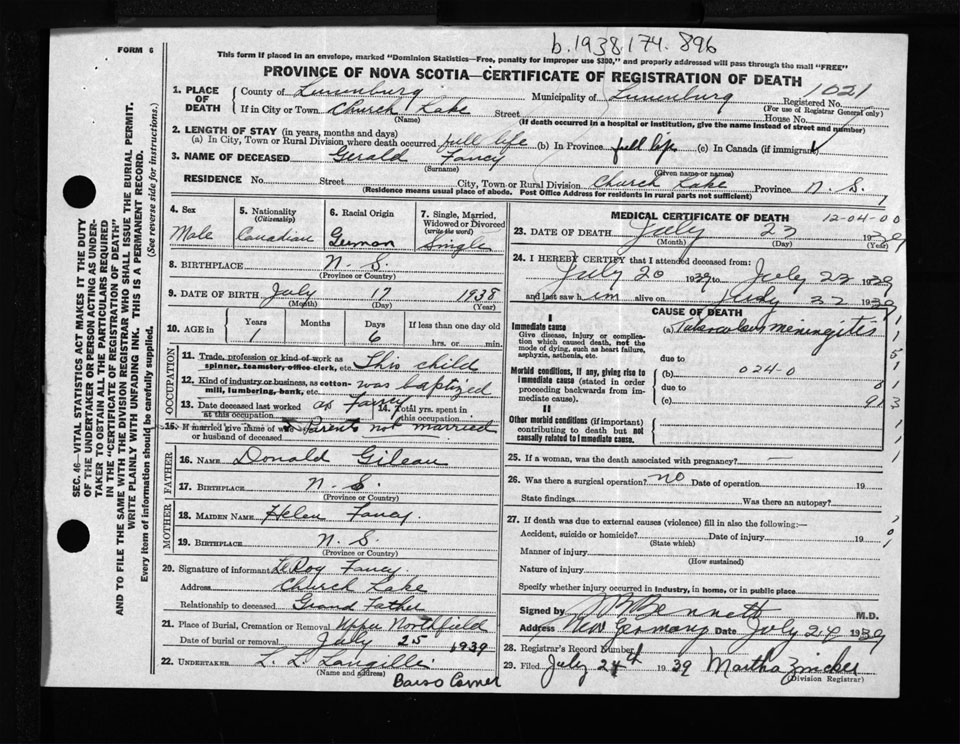 b.1938.174.896
FORM 6
This form if placed in an envelope, marked "Dominion Statistics—Free, penalty for improper use $300," and properly addressed will pass through the mail "FREE"
PROVINCE OF NOVA SCOTIA—CERTIFICATE OF REGISTRATION OF DEATH
SEC. 46—VITAL STATISTICS ACT MAKES IT THE DUTY
OF THE UNDERTAKER OR PERSON ACTING AS UNDER-
TAKER TO OBTAIN ALL THE PARTICULARS REQUIRED
IN THE "CERTIFICATE OF REGISTRATION OF DEATH"
AND TO FILE THE SAME WITH THE DIVISION REGISTRAR WHO SHALL ISSUE THE BURIAL PERMIT.
WRITE PLAINLY WITH UNFADING INK. THIS IS A PERMANENT RECORD.
Every item of information should be carefully supplied. (See reverse side for instructions.)
1. PLACE OF DEATH
County of Lunenburg Municipality of Lunenburg Registered No. 1021
(For use of Registrar General only)
If in City or Town Church Lake Street House No.
(Name) (If death occurred in a hospital or institution, give the name instead of street and number)
2. LENGTH OF STAY (in years, months and days)
(a) In City, Town or Rural Division where death occurred full life (b) In Province full life (c) In Canada (if immigrant)
3. NAME OF DECEASED Gerald Fancy
(Surname) (Given name or names)
RESIDENCE No. Street City, Town or Rural Division Church Lake Province N. S.
(Residence means usual place of abode. Post Office Address for residents in rural parts not sufficient)
4. Sex Male
5. Nationality (Citizenship) Canadian
6. Racial Origin German
7. Single, Married, Widowed or Divorced (write the word) Single
8. BIRTHPLACE N. S.
(Province or Country)
9. DATE OF BIRTH July 17 1938
(Month) (Day) (Year)
10. AGE IN Years 1 Months Days 6 If less than one day old hrs. or min.
OCCUPATION
11. Trade, profession or kind of work as
spinner, teamster, office clerk, etc. This child
12. Kind of industry or business, as cotton-
mill, lumbering, bank, etc. was baptized
13. Date deceased last worked at this occupation as Fancy 14. Total yrs. spent in this occupation
15. If married give name of wife
or husband of deceased Parents not married
FATHER
16. NAME Donald
17. BIRTHPLACE N. S.
(Province or Country)
MOTHER
18. MAIDEN NAME Helen Fancy.
19. BIRTHPLACE N. S.
(Province or Country)
20. Signature of informant LeRoy Fancy.
Address Church Lake
Relationship to deceased Grand Father
21. Place of Burial, Cremation or Removal Upper Northfield
Date of burial or removal July 25 1939
22. UNDERTAKER L. L. Langille
(Name and address)
Barss Corner
MEDICAL CERTIFICATE OF DEATH 12-04-00
23. DATE OF DEATH July 23 1939
(Month) (Day) (Year)
24. I HEREBY CERTIFY that I attended deceased from:
July 20 1939 to July 22 1939
and last saw him alive on July 22 1939
CAUSE OF DEATH
I
Immediate cause
Give disease, injury or complication which caused death, not the mode of dying, such as heart failure, asphyxia, asthenia, etc.
(a) Tuberculous meningitis
due to
Morbid conditions, if any, giving rise to immediate cause (stated in order proceeding backwards from immediate cause).
(b) 024-0
due to
(c) 91
II
Other morbid conditions (if important) contributing to death but not causally related to immediate cause.
25. If a woman, was the death associated with pregnancy? —
26. Was there a surgical operation? no Date of operation 19
State findings Was there an autopsy?
27. If death was due to external causes (violence) fill in also the following:—
Accident, suicide or homicide? Date of injury 19
(State which)
Manner of injury
(How sustained)
Nature of injury
Specify whether injury occurred in industry, in home, or in public place
Signed by Bennett M.D.
Address New Germany Date July 24 1939
28. Registrar's Record Number
29. Filed July 24 1939 Martha Zwicker
(Division Registrar)